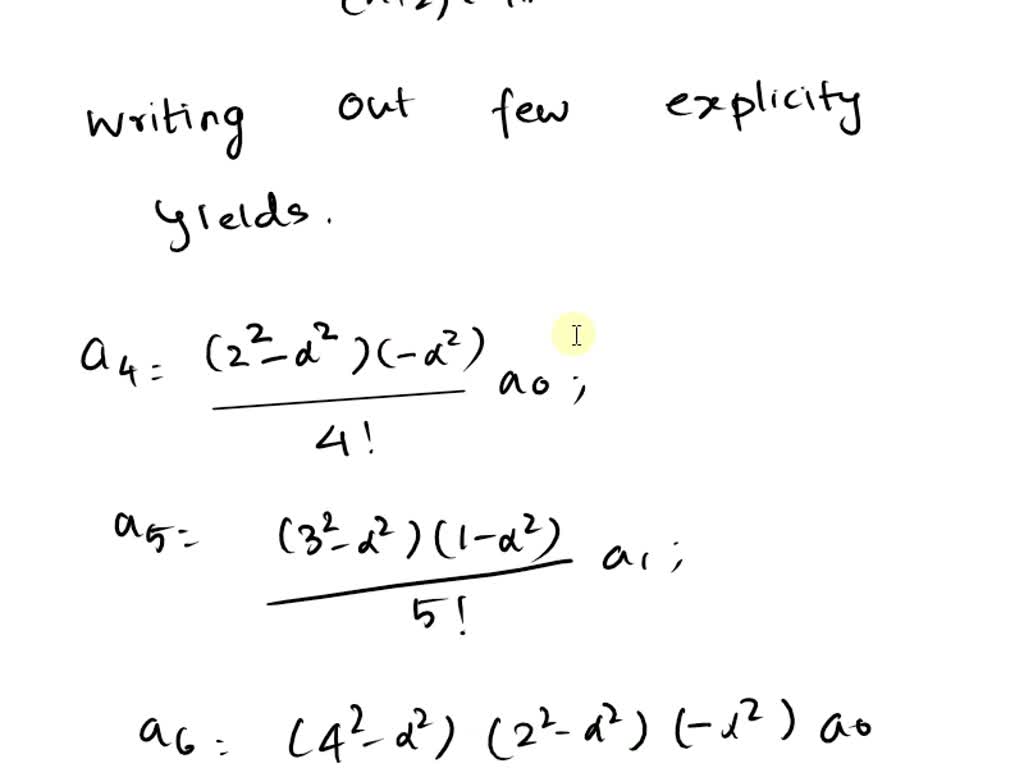 writing out few explicity
yields.
a4 = (2²-α²)(-α²) / 4! a0 ;
a5 = (3²-α²)(1-α²) / 5! a1 ;
a6 = (4²-α²) (2²-α²) (-α²) a0